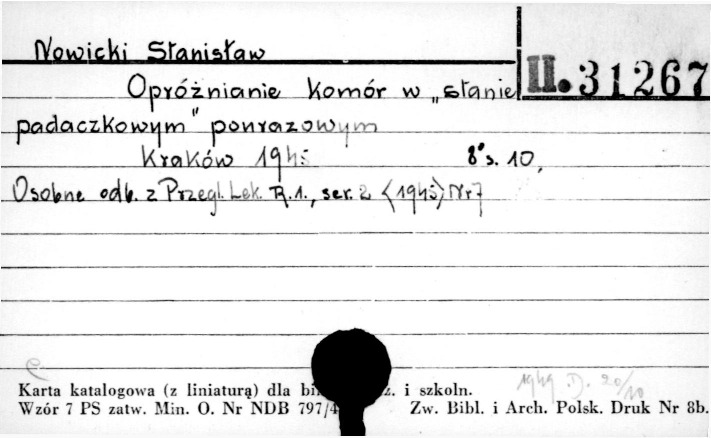 Nowicki Stanisław
II. 31267
Opróżnianie komór w „stanie
padaczkowym" ponrazowym
Kraków 1945 8° s. 10,
Osobne odb. z Przegl. Lek. R. 1., ser. 2 <1945> Nr 7
1949 D. 20/10
Karta katalogowa (z liniaturą) dla . i szkoln.
Wzór 7 PS zatw. Min. O. Nr NDB 797/4 Zw. Bibl. i Arch. Polsk. Druk Nr 8b.